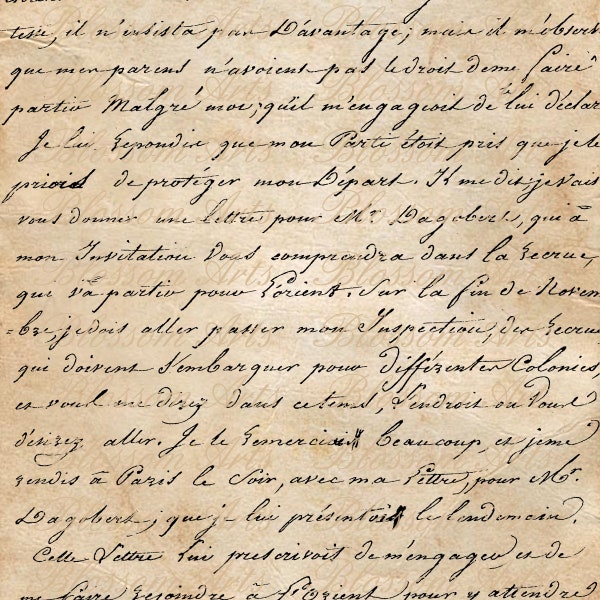 teste, il n'insista pas Davantage; mais il m'observ
que mes parens n'avoient pas le droit de me faire
partir Malgré moi; qu'il m'engageoit de le lui déclar
Je lui repondis que mon Parti étoit pris que je le
priois de protéger mon Départ. Il me dit; je vais
vous donner une lettre pour Mr. Dagobert, qui à
mon Invitation vous comprendra dans la recrue,
qui va partir pour Lorient. Sur la fin de Novem
=bre, je dois aller passer mon Inspection, des Recrue
qui doivent s'embarquer pour différentes Colonies,
et vous me direz dans ce tems, l'endroit ou vous
désirez aller. Je le remerciai beaucoup, et je me
rendis à Paris le Soir, avec ma Lettre, pour Mr.
Dagobert; que je lui présentois le lendemain.
Cette Lettre lui prescrivoit de m'engager, et de
me faire rejoindre à L'Orient pour y attendre